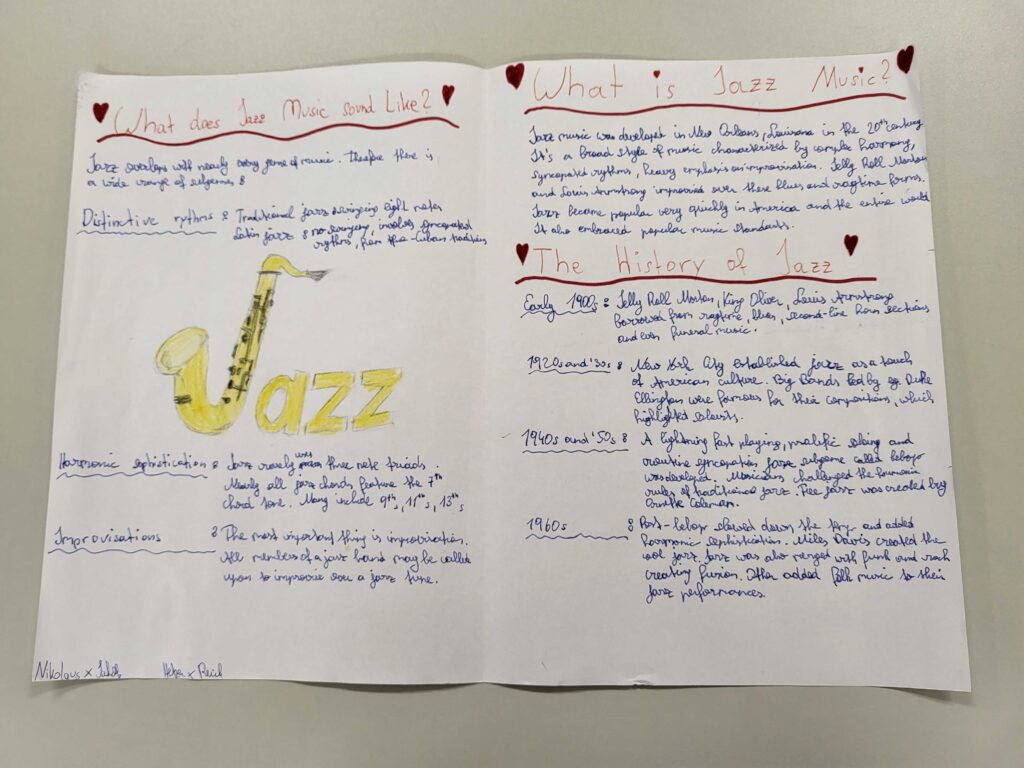 What does Jazz Music sound Like?
Jazz overlaps with nearly every genre of music. Therefore there is
a wide range of subgenres:
Distinctive rythms: Traditional jazz swinging eight notes
Latin jazz: no swinging, involves syncopated
rythms, from the -Cuban traditions
Jazz
Harmonic sophistication: Jazz rarely uses three note triads.
Nearly all jazz chords feature the 7th
chord tone. Many include 9th, 11th, 13th
Improvisations : The most important thing is improvisation.
All members of a jazz band may be called
upon to improvise over a jazz tune.
Nikolaus x
What is Jazz Music?
Jazz music was developed in New Orleans, Louisiana in the 20th century
It's a broad style of music characterized by complex harmony,
syncopated rythms, heavy emphasis on improvisation. Jelly Roll Morton
and Louis Armstrong improvised over these blues and ragtime forms.
Jazz became popular very quickly in America and the entire world
It also embraced popular music standarts.
The History of Jazz
Early 1900s: Jelly Roll Morton, King Oliver, Louis Armstrong
borrowed from ragtime, blues, second-line horn sections
and even funeral music.
1920s and '30s: New York City established jazz as a touch
of American culture. Big Bands led by eg. Duke
Ellington were famous for their compositions, which
highlighted soloists.
1940s and '50s: A lightning fast playing, prolific soloing and
routine syncopation jazz subgenre called bebop
was developed. Musicians challenged the harmonic
rules of traditional jazz. Free jazz was created by
Ornette Coleman.
1960s : Post-bebop slowed down the and added
harmonic sophistication. Miles Davis created the
cool jazz. Jazz was also merged with funk and rock
creating fusion. Other added folk music to their
jazz performances.